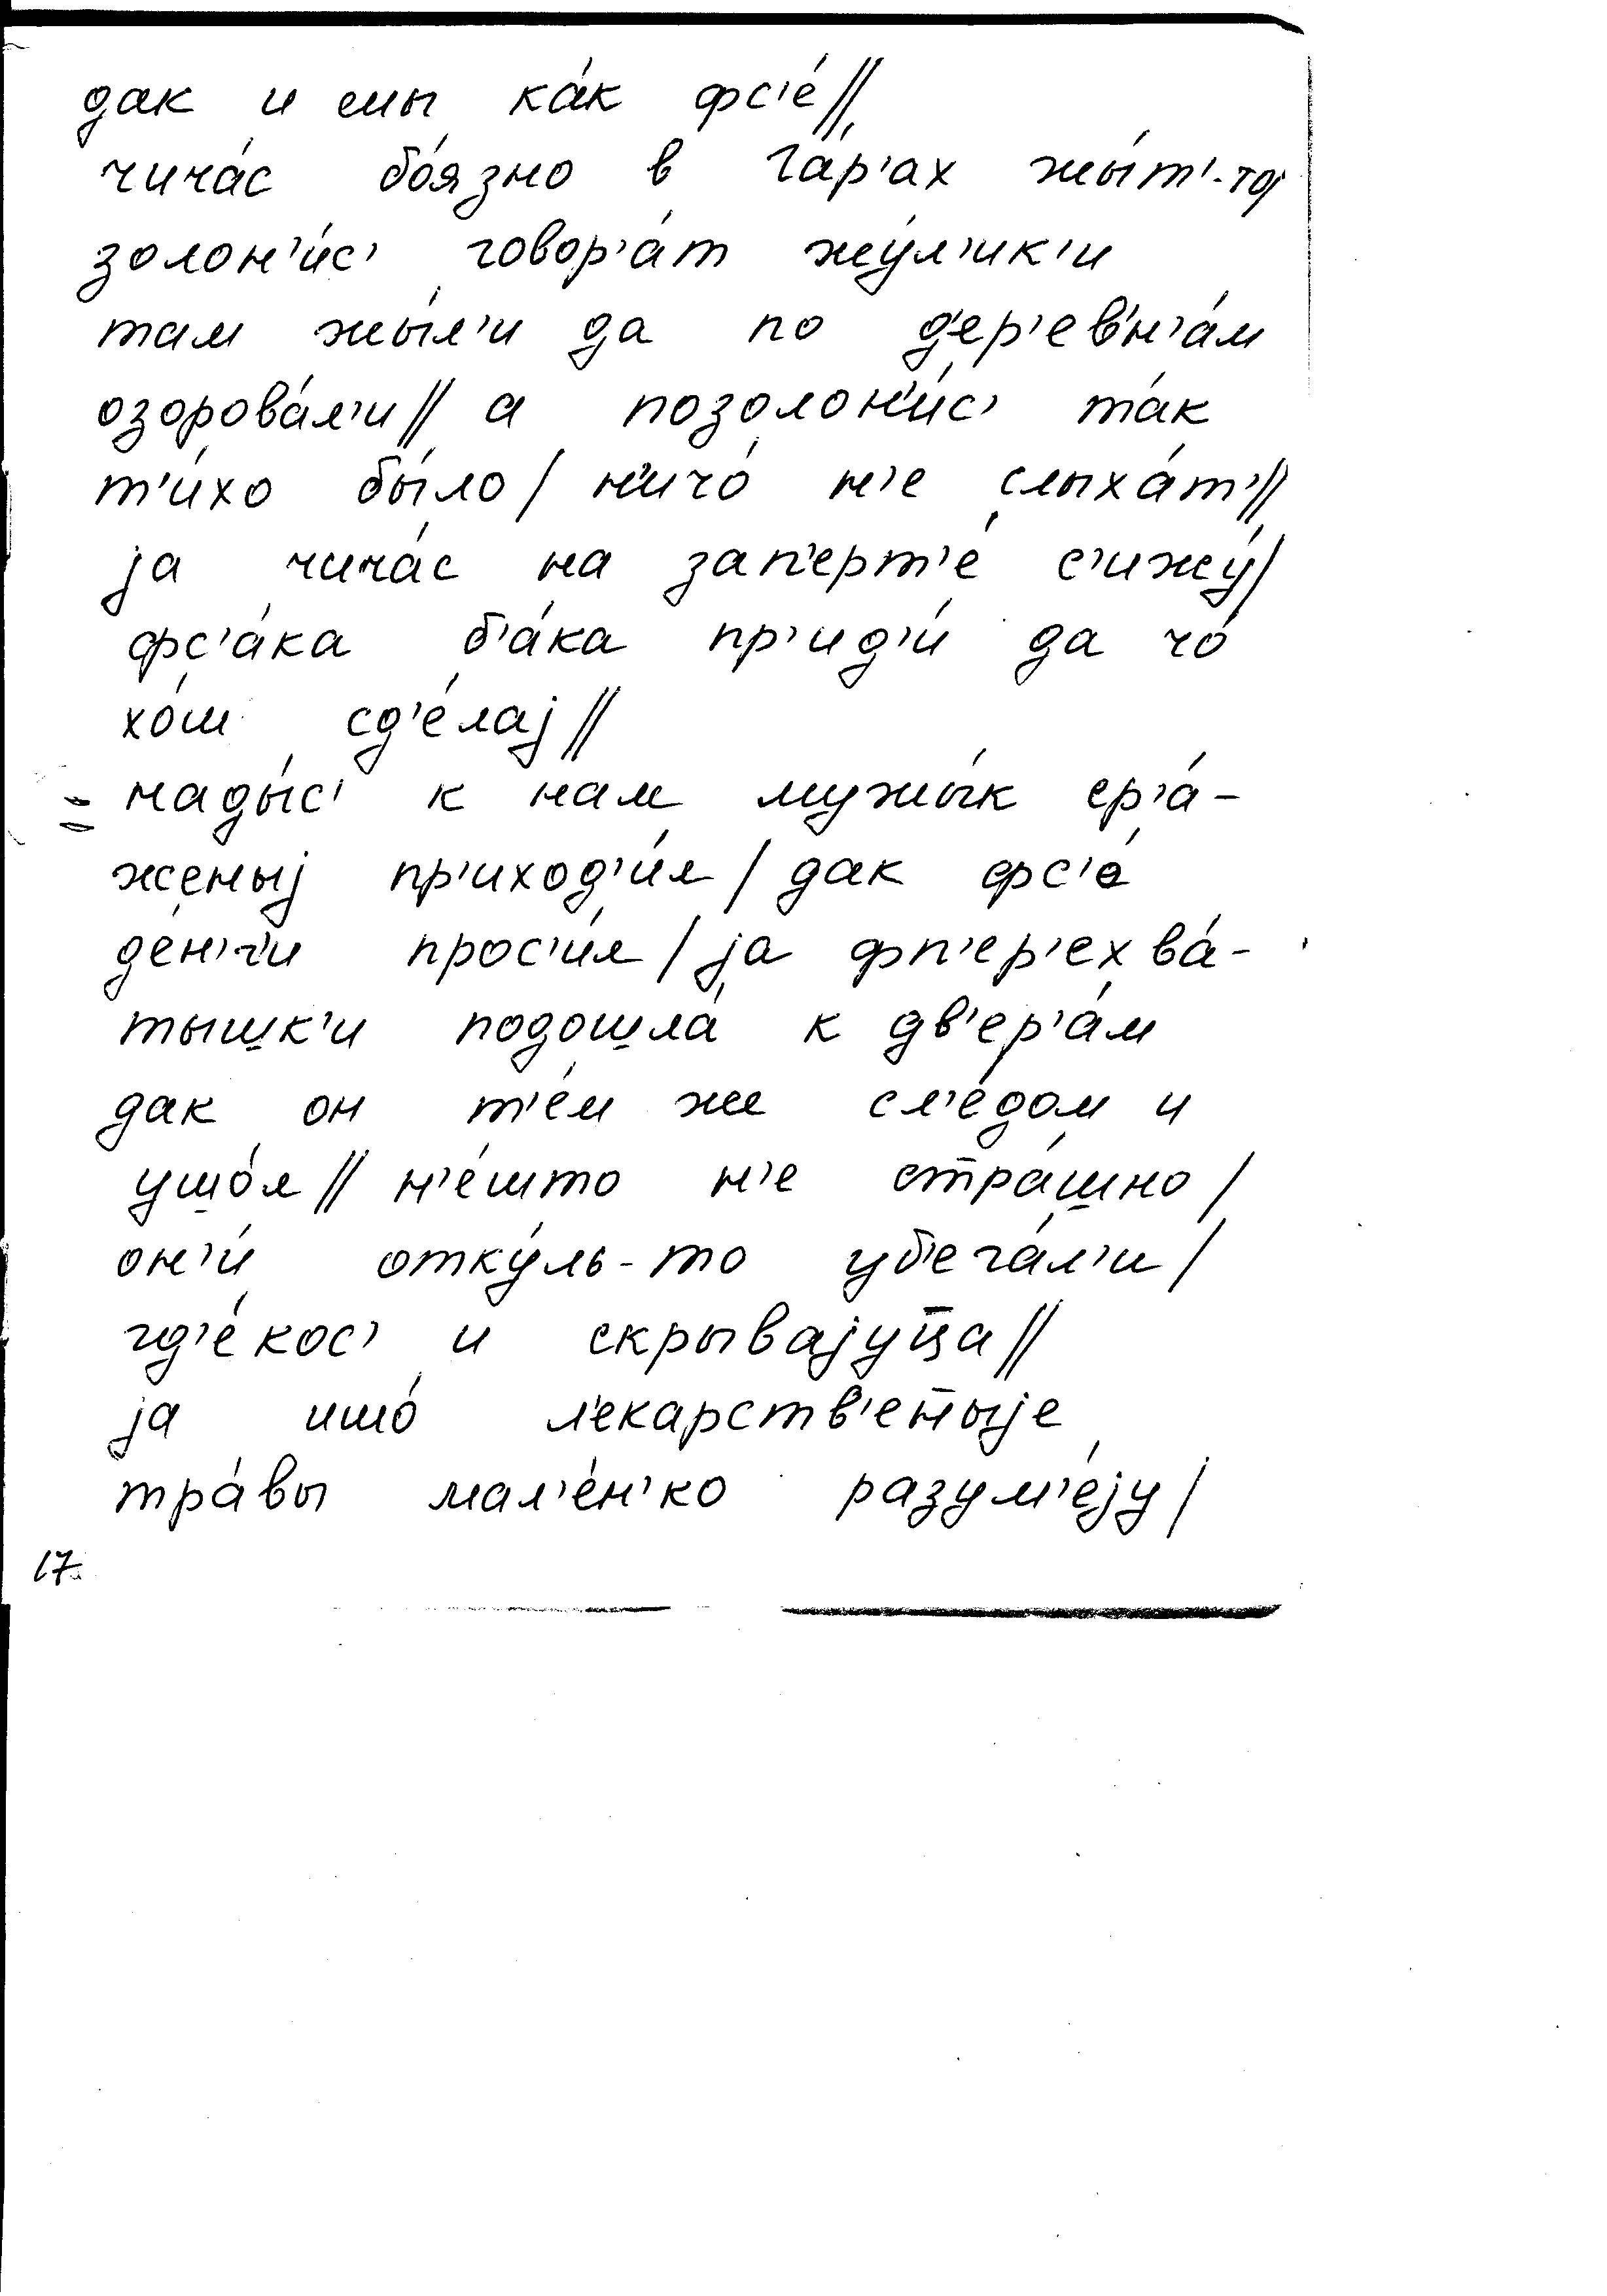 дак и мы ка́к фс'е́//
чича́с бо́язно в Га́р'ах жы́т'-то/
золон'и́с' говор'а́т жу́л'ик'и
там жы́л'и да по д'ер'ев'н'а́м
озорова́л'и// а позолон'и́с' та́к
т'и́хо бы́ло/ н'ичо́ н'е слыха́т'//
jа чича́с на зап'ерт'е́ с'ижу́/
фс'а́ка б'а́ка пр'ид'и́ да чо́
хо́ш сд'е́лаj//
нады́с' к нам мужы́к ср'а́-
женыj пр'иход'и́л/ дак фс'о́
де́н'г'и прос'и́л/ jа фп'ер'ехва́-
тышк'и подошла́ к дв'ер'а́м
дак он т'е́м же сл'е́дом и
ушо́л// н'е́што н'е стра́шно/
он'и́ отку́ль-то уб'ега́л'и/
гд'е́кос' и скрываjуц̄а//
jа ишо́ л'екарств'ен̄ыjе
тра́вы мал'е́н'ко разум'е́jу/
17